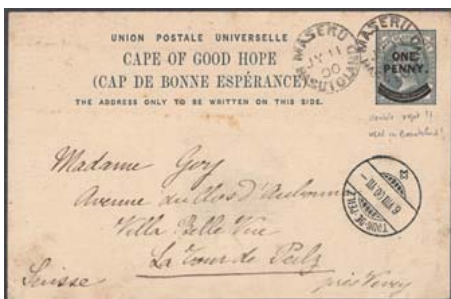 UNION POSTALE UNIVERSELLE
CAPE OF GOOD HOPE
(CAP DE BONNE ESPÉRANCE)
THE ADDRESS ONLY TO BE WRITTEN ON THIS SIDE.
MASERU
JY 11
00
BASUTOLAND
MASERU
ONE
PENNY.
Madame Goy
Avenue du Clos d'
Villa Belle Vue
La Tour de Peilz
Suisse
près Vevey
TOUR-DE-PEILZ
6.VIII.00.VII